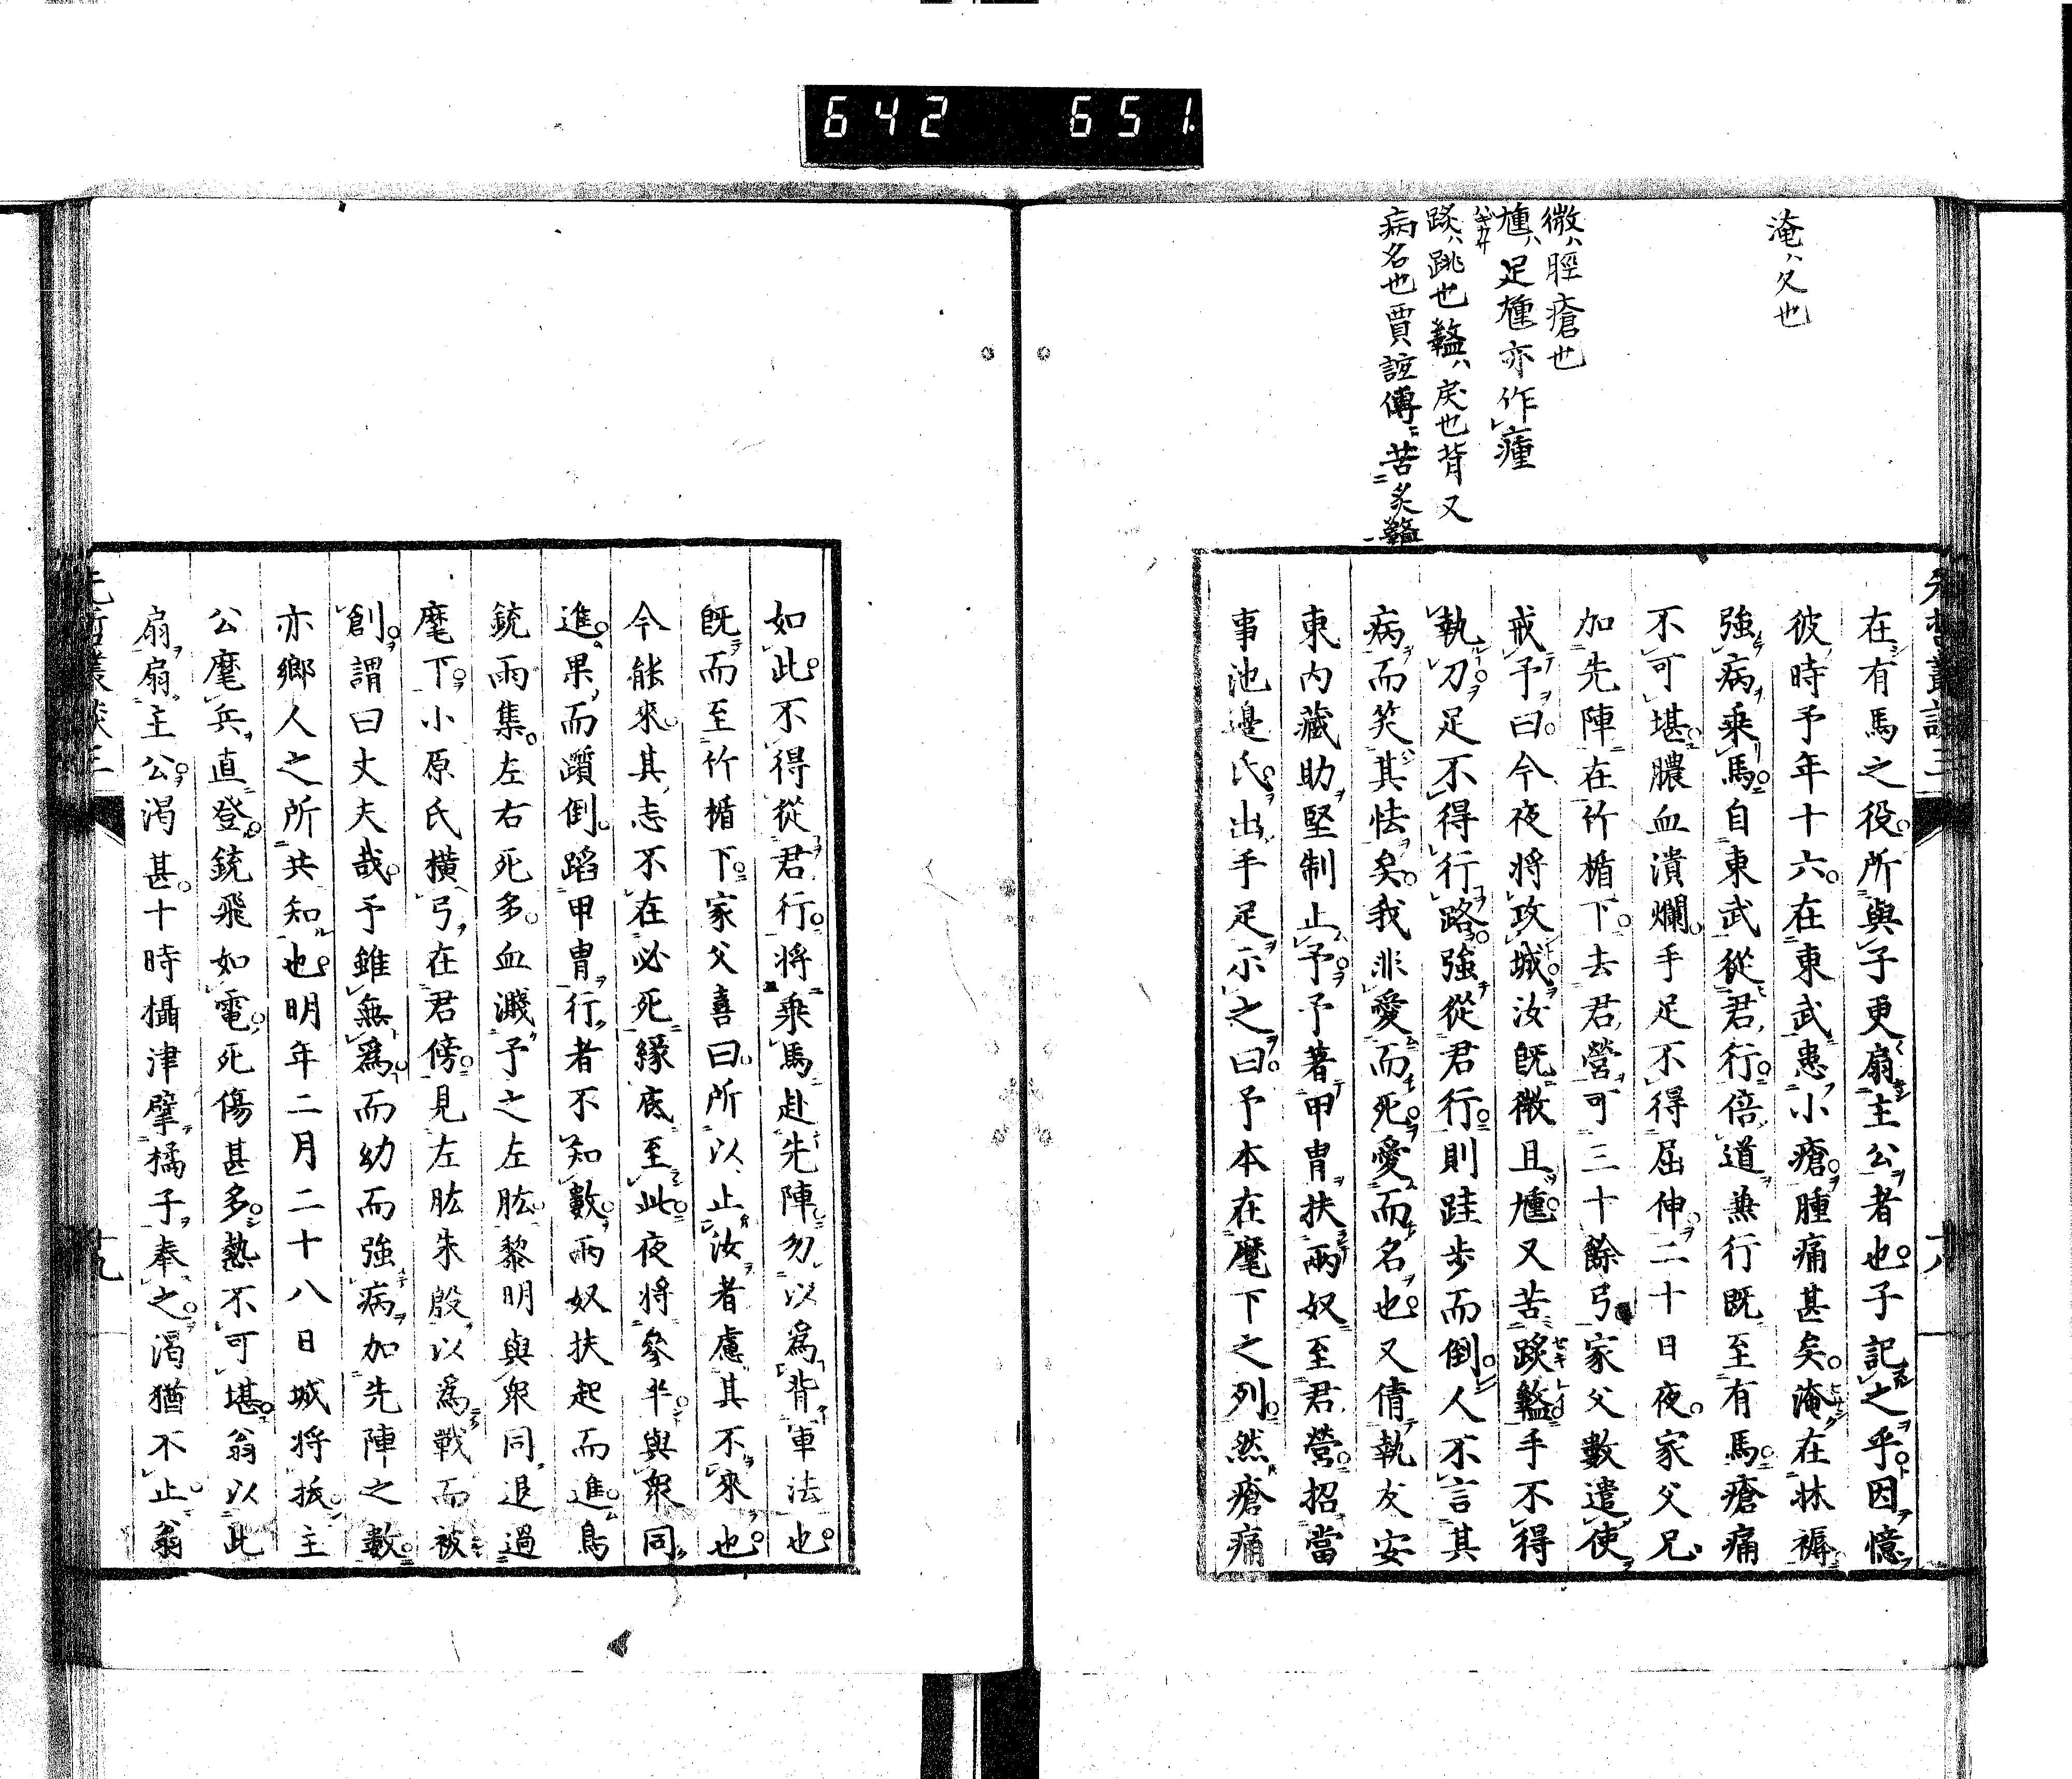 642 651.
淹ハ久也
微ハ脛瘡也
尰ハ足尰亦作瘇
蹊ハ跳也盭ハ戾也背又
病名也賈誼傳苦炙盭
先哲叢談三
在有馬之役所與子更扇主公者也子記之乎因憶
彼時予年十六在東武患小瘡腫痛甚矣淹在牀褥
強病乘馬自東武從君行倍道兼行既至有馬瘡痛
不可堪膿血潰爛手足不得屈伸二十日夜家父兄
加先陣在竹楯下去君營可三十餘弓家父數遣使
戒予曰今夜將攻城汝既微且尰又苦盭手不得
執刀足不得行路強從君行則跬步而倒人不言其
病而笑其怯矣我非愛而死愛而名也又倩執友安
東内藏助堅制止予予著甲冑扶兩奴至君營招當
事池邊氏出手足示之曰予本在麾下之列然瘡痛
如此不得從君行將乘馬赴先陣勿以爲背軍法也
既而至竹楯下家父喜曰所以止汝者慮其不來也
今能來其志不在必死緣底至此夜將參半與衆同
進果而躓倒蹈甲冑行者不知數兩奴扶起而進鳥
銃雨集左右死多血濺予之左肱黎明與衆同退過
麾下小原氏橫弓在君傍見左肱朱殷以爲戰而被
創謂曰丈夫哉予雖無爲而幼而強病加先陣之數
亦鄉人之所共知也明年二月二十八日城將拔主
公麾兵直登銃飛如電死傷甚多熱不可堪翁以此
扇扇主公渴甚十時攝津擘橘子奉之渴猶不止翁
先哲叢談三
十九